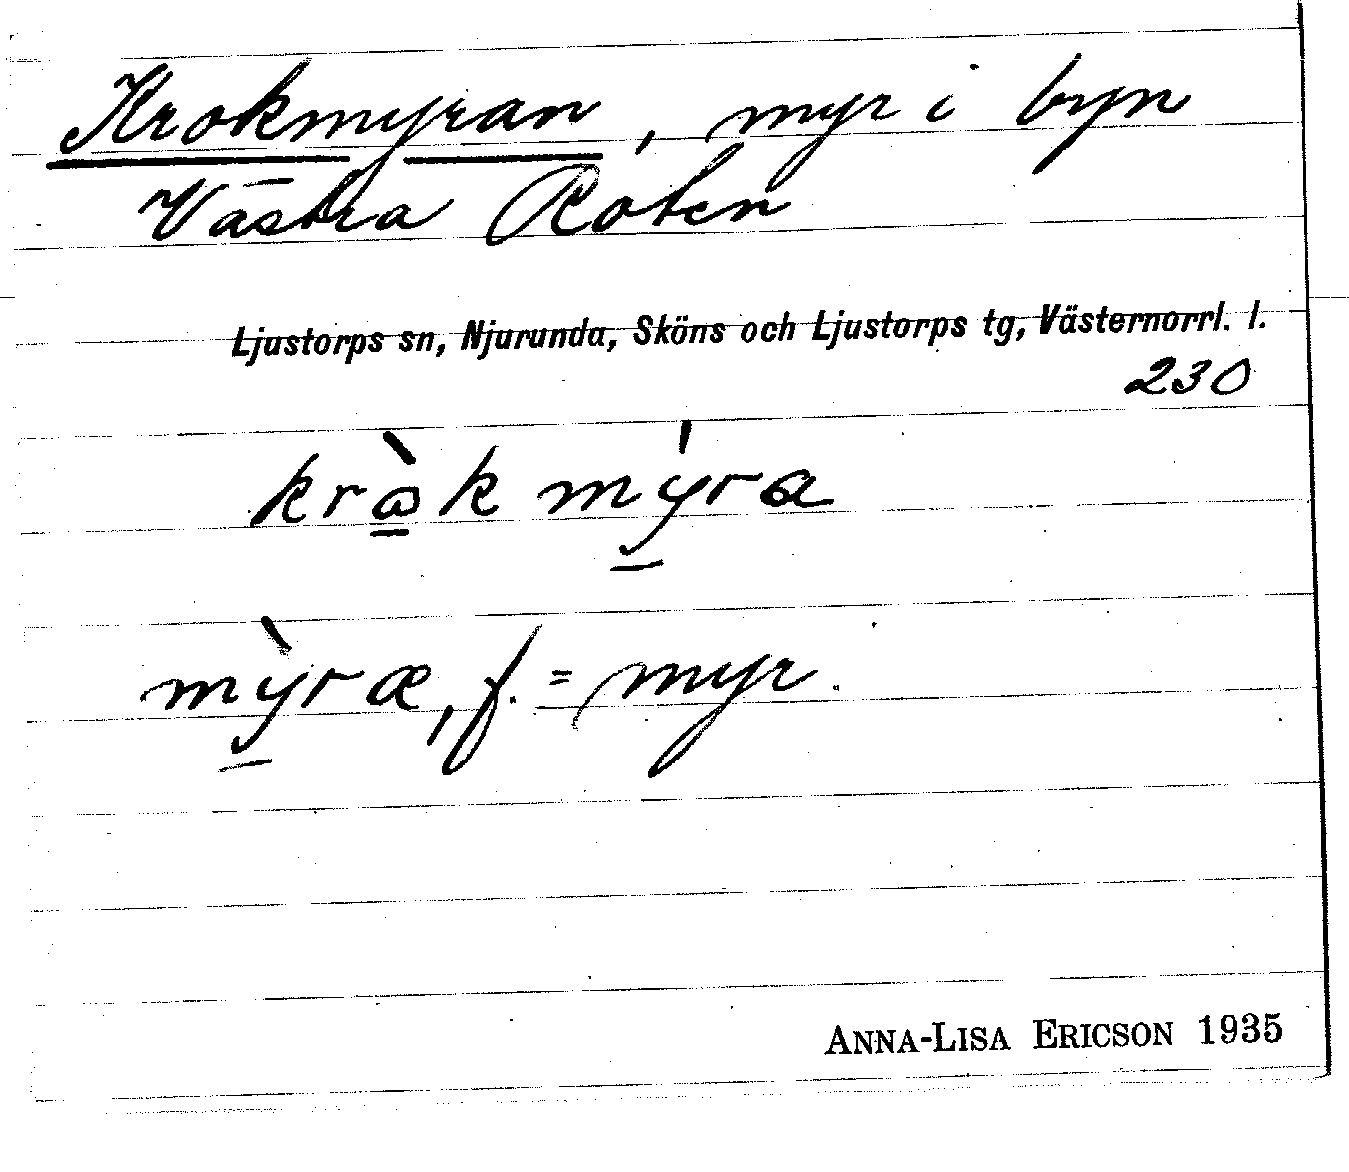 Krokmyran, myr i byn
Västra Roten
Ljustorps sn, Njurunda, Sköns och Ljustorps tg, Västernorrl. l.
230
kròkmýra
mỳræ, f. = myr.
ANNA-LISA ERICSON 1935